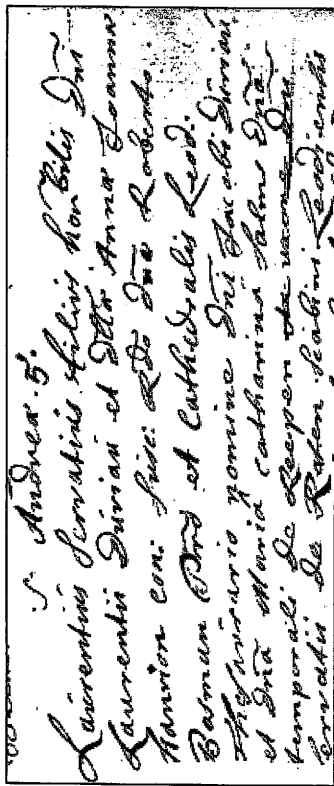 S. Andreæ. 5ᵃ
Laurentius Servatius filius hon̄bilis Dn̄i
Laurentii Dirian et Dn̄æ Annæ Joannæ
Hanrion coni. susc. a Rdo Dno Roberto
Basman Pbro et Cathedralis Leod.
Thesaurario nomine Dni Jacobi Dirian
et Dnā Mariā Catharinā Salms Dnā
temporali De Recepen de nomine Dni
Servatii De Raten Scabini Leodiensis